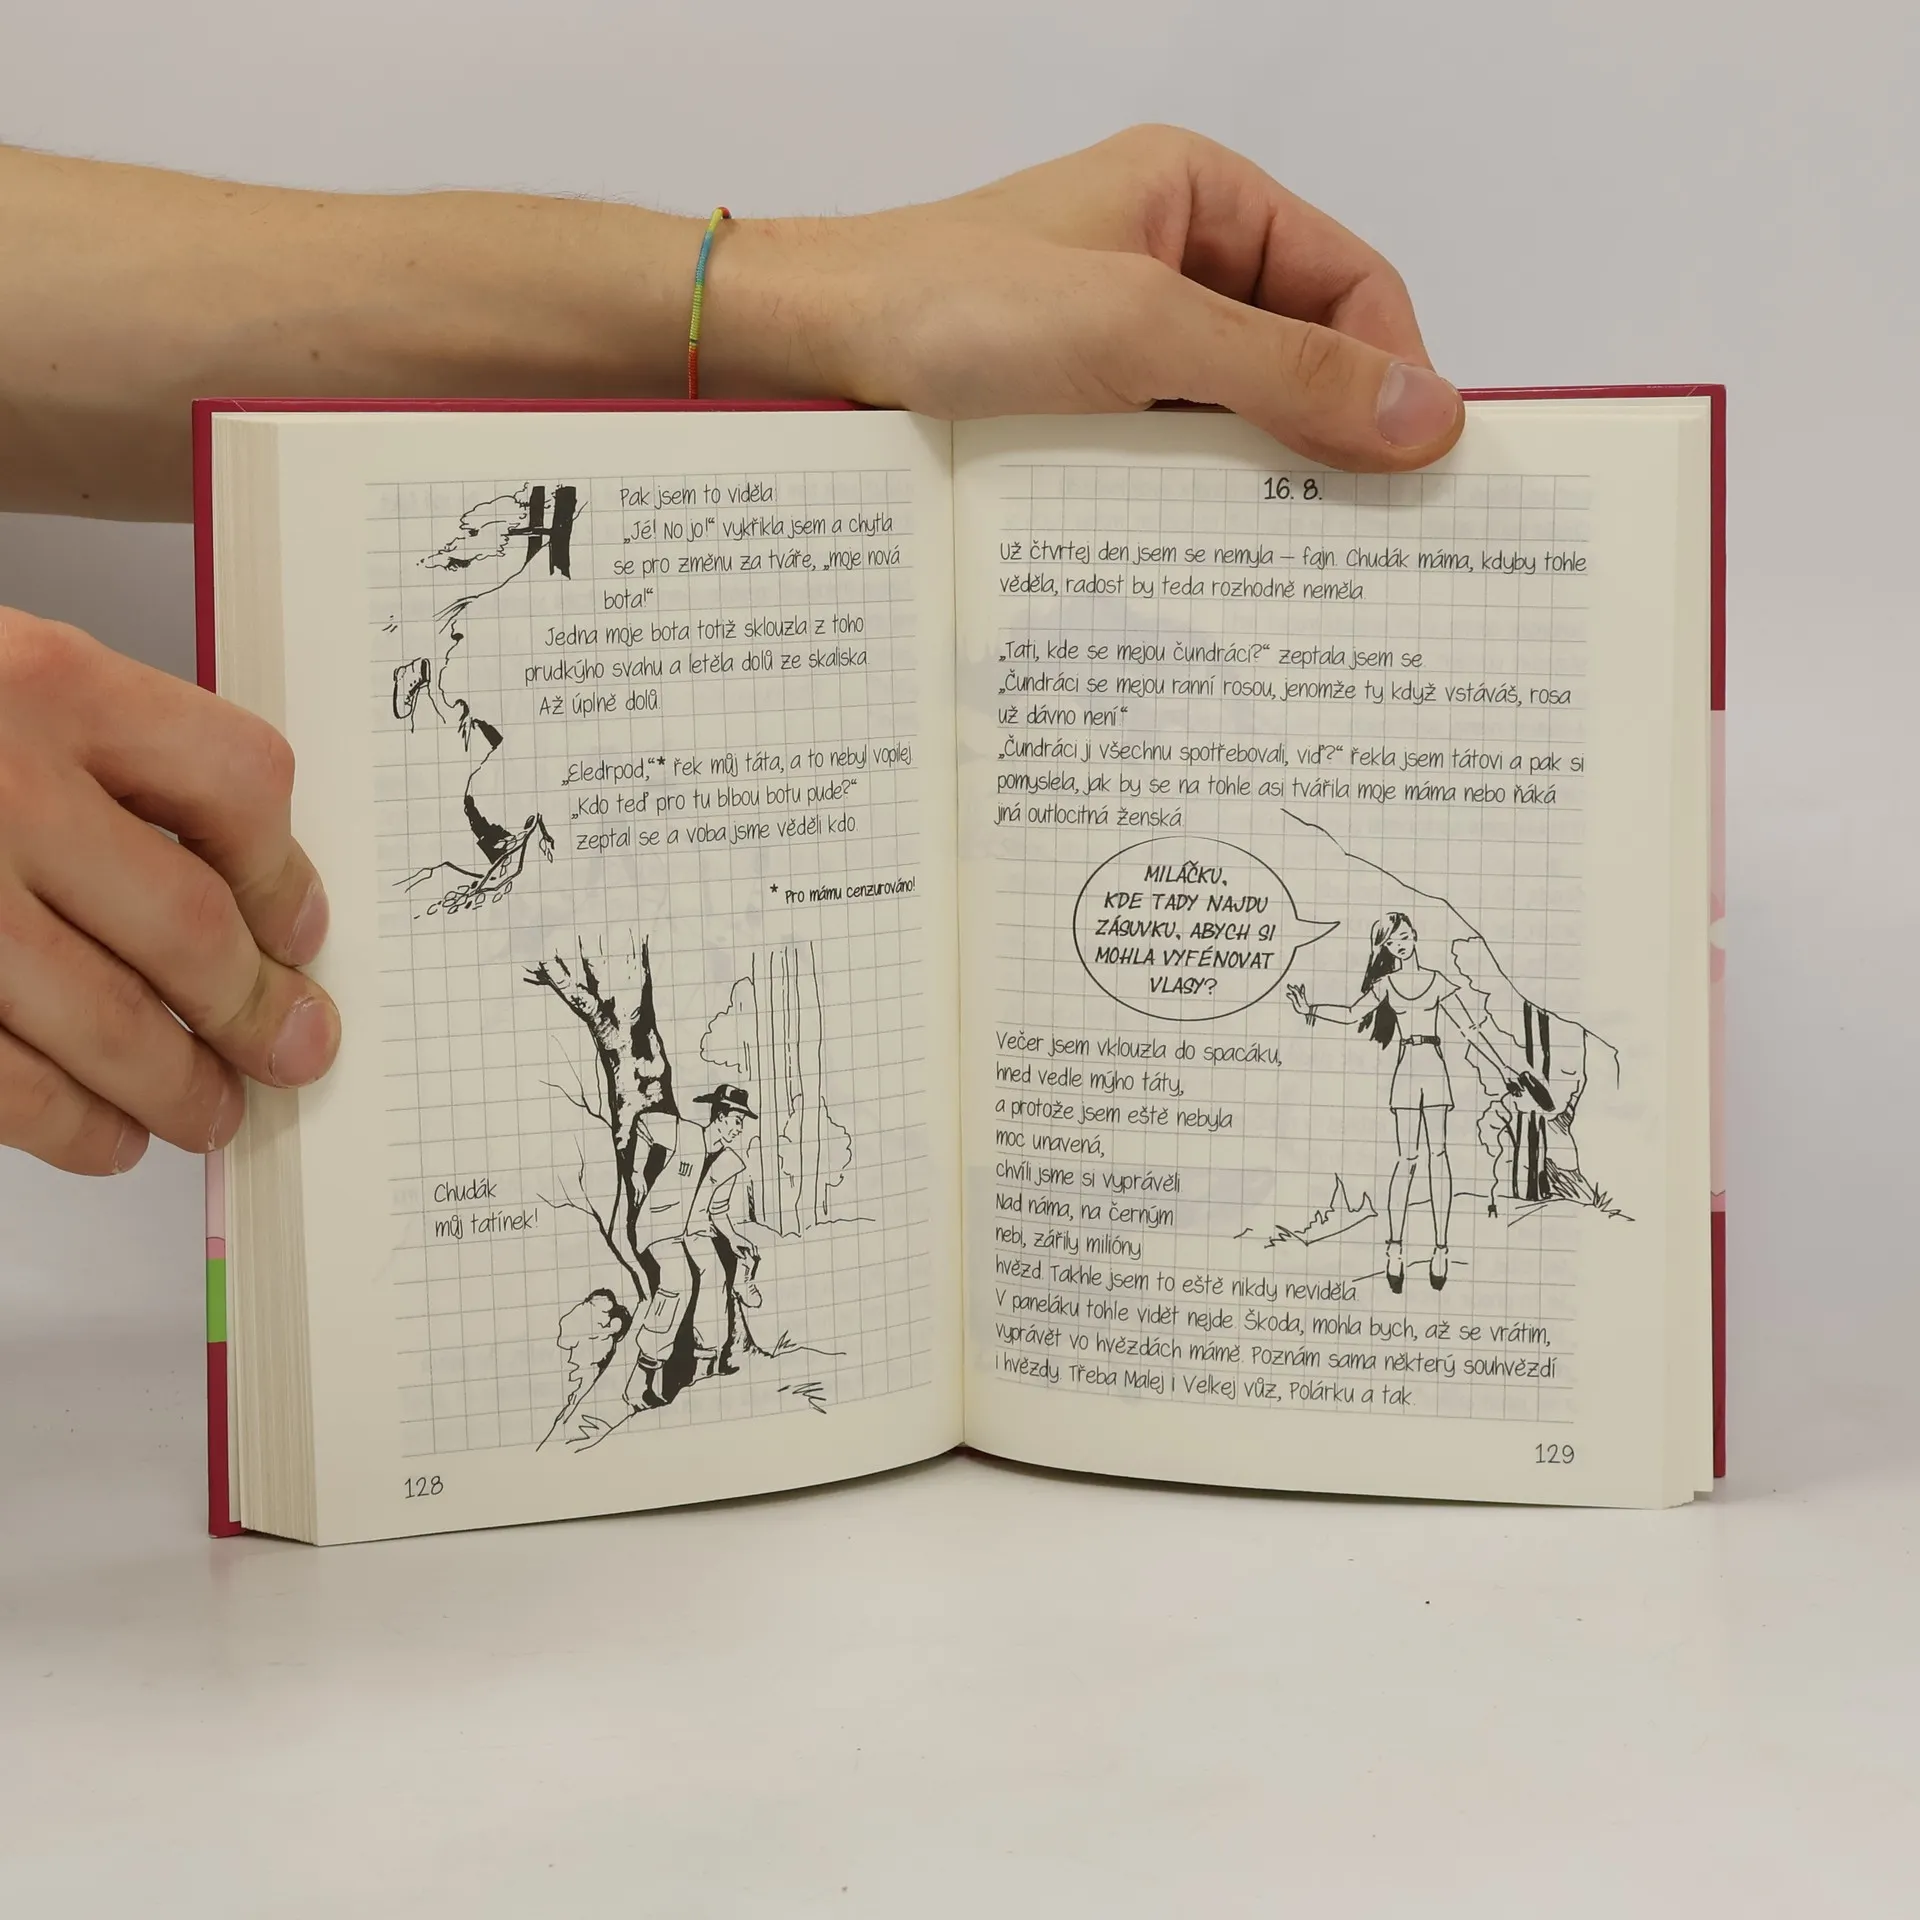 Pak jsem to viděla.
„Jé! No jo!“ vykřikla jsem a chytla
se pro změnu za tváře, „moje nová
bota!“
Jedna moje bota totiž sklouzla z toho
prudkýho svahu a letěla dolů ze skaliska.
Až úplně dolů.
„Eledrpod,“* řek můj táta, a to nebyl vopilej.
„Kdo teď pro tu blbou botu pude?“
zeptal se a voba jsme věděli kdo.
* Pro mámu cenzurováno!
Chudák
můj tatínek!
128
16. 8.
Už čtvrtej den jsem se nemyla – fajn. Chudák máma, kdyby tohle
věděla, radost by teda rozhodně neměla.
„Tati, kde se mejou čundráci?“ zeptala jsem se.
„Čundráci se mejou ranní rosou, jenomže ty když vstáváš, rosa
už dávno není.“
„Čundráci ji všechnu spotřebovali, viď?“ řekla jsem tátovi a pak si
pomyslela, jak by se na tohle asi tvářila moje máma nebo ňáká
jiná outlocitná ženská.
MILÁČKU,
KDE TADY NAJDU
ZÁSUVKU, ABYCH SI
MOHLA VYFÉNOVAT
VLASY?
Večer jsem vklouzla do spacáku,
hned vedle mýho táty,
a protože jsem eště nebyla
moc unavená,
chvíli jsme si vyprávěli.
Nad náma, na černým
nebi, zářily milióny
hvězd. Takhle jsem to eště nikdy neviděla.
V paneláku tohle vidět nejde. Škoda, mohla bych, až se vrátim,
vyprávět vo hvězdách mámě. Poznám sama některý souhvězdí
i hvězdy. Třeba Malej i Velkej vůz, Polárku a tak.
129